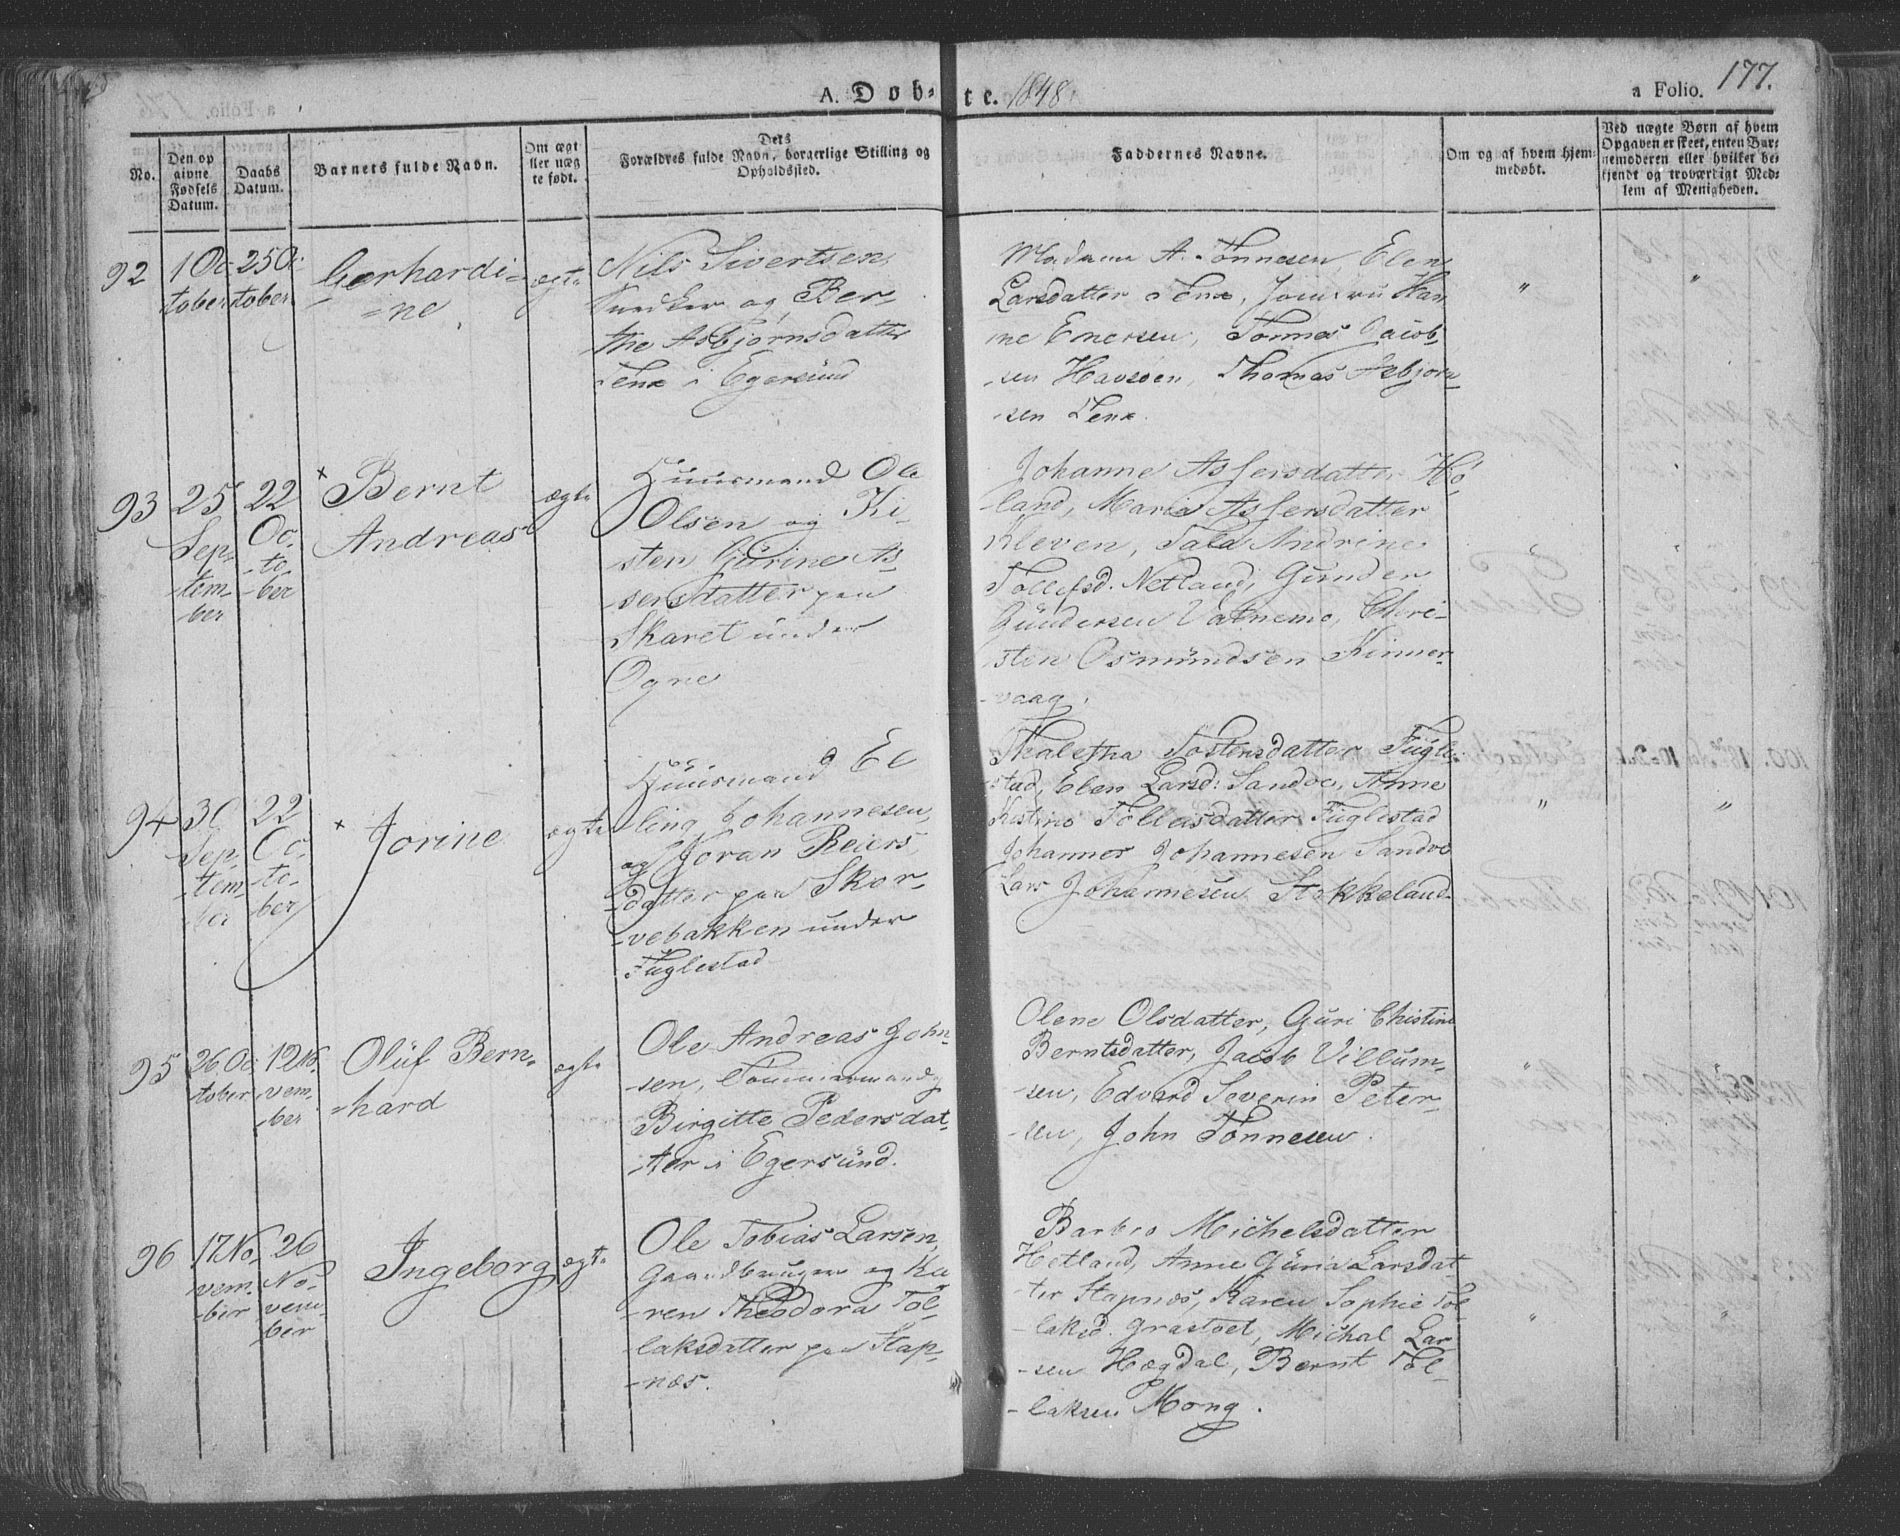 A. Døb- te. 1848.
a Folio. 177.
No.
Den op
givne
Fødsels
Datum.
Daabs
Datum.
Barnets fulde Navn.
Om ægt
eller uæg
te født.
Dets
Forældres fulde Navn, borgerlige Stilling og
Opholdssted.
Faddernes Navne.
Om og af hvem hjem-
medøbt.
Ved uægte Børn af hvem
Opgaven er skeet, enten Bar-
nemoderen eller hvilket be-
kjendt og troværdigt Med-
lem af Menigheden.
92
1 Oc
tober
25 Oc
tober
Gerhardi-
-ne
ægte
Nils Sivertsen
Snedker og Ber-
the Asbjørnsdatter
i Egersund
Madame A. Tønnesen, Elen
Larsdatter Jomfru Han
ne Emersen, Tønnes Jacob-
sen Havsøen, Thomas Asbjørn-
-sen
"
"
93
25
Sep-
-tem-
ber
22
Oc-
-to-
-ber
× Bernt
Andreas
ægte
Huusmand Ole
Olsen og Ki-
sten Gurine As-
-sersdatter paa
Skaret under
Ogne
Johanne Assersdatter Hø-
land, Maria Assersdatter
Kleven, Tala Andrine
Tollefsd. Netland, Gunder
Gundersen Vatnemo, Chri-
sten Osmundsen Kinner-
-vaag.
94
30
Sep-
-tem-
ber
22
Oc-
-to-
-ber
× Jorine
ægte
Huusmand El-
-ling Johannesen
og Joran Reiers-
-datter paa Skor-
-vebakken under
Fuglestad
Tostensdatter Fugle-
stad, Elen Larsd: Sandve, Anne
Kistine Tolleisdatter Fuglestad
Johannes Johannesen Sandve
Lars Johannesen Stokkeland.
"
"
95
26 Oc
tober
12 No-
vem-
-ber
Oluf Bern-
-hard
ægte
Ole Andreas John-
-sen, Tømmermand og
Birgitte Pedersdat-
-ter i Egersund.
Olene Olsdatter, Guri Christine
Berntsdatter, Jacob Villum-
-sen, Edvard Severin Peter-
-sen, John Tønnesen.
"
96
17 No-
vem-
-ber
26
No-
vem-
ber
Ingeborg
ægte
Ole Tobias Larsen,
Gaardbruger og Ka-
ren Theodora Tol-
laksdatter paa Stap-
-næs.
Barbro Michelsdatter
Hetland, Anne Guria Larsdat-
-ter Stapnæs, Karen Sophie Tol-
-laksd. Grastveit, Michal Lar-
-sen Hægdal, Bernt Tol-
-laksen Mong.
"
"